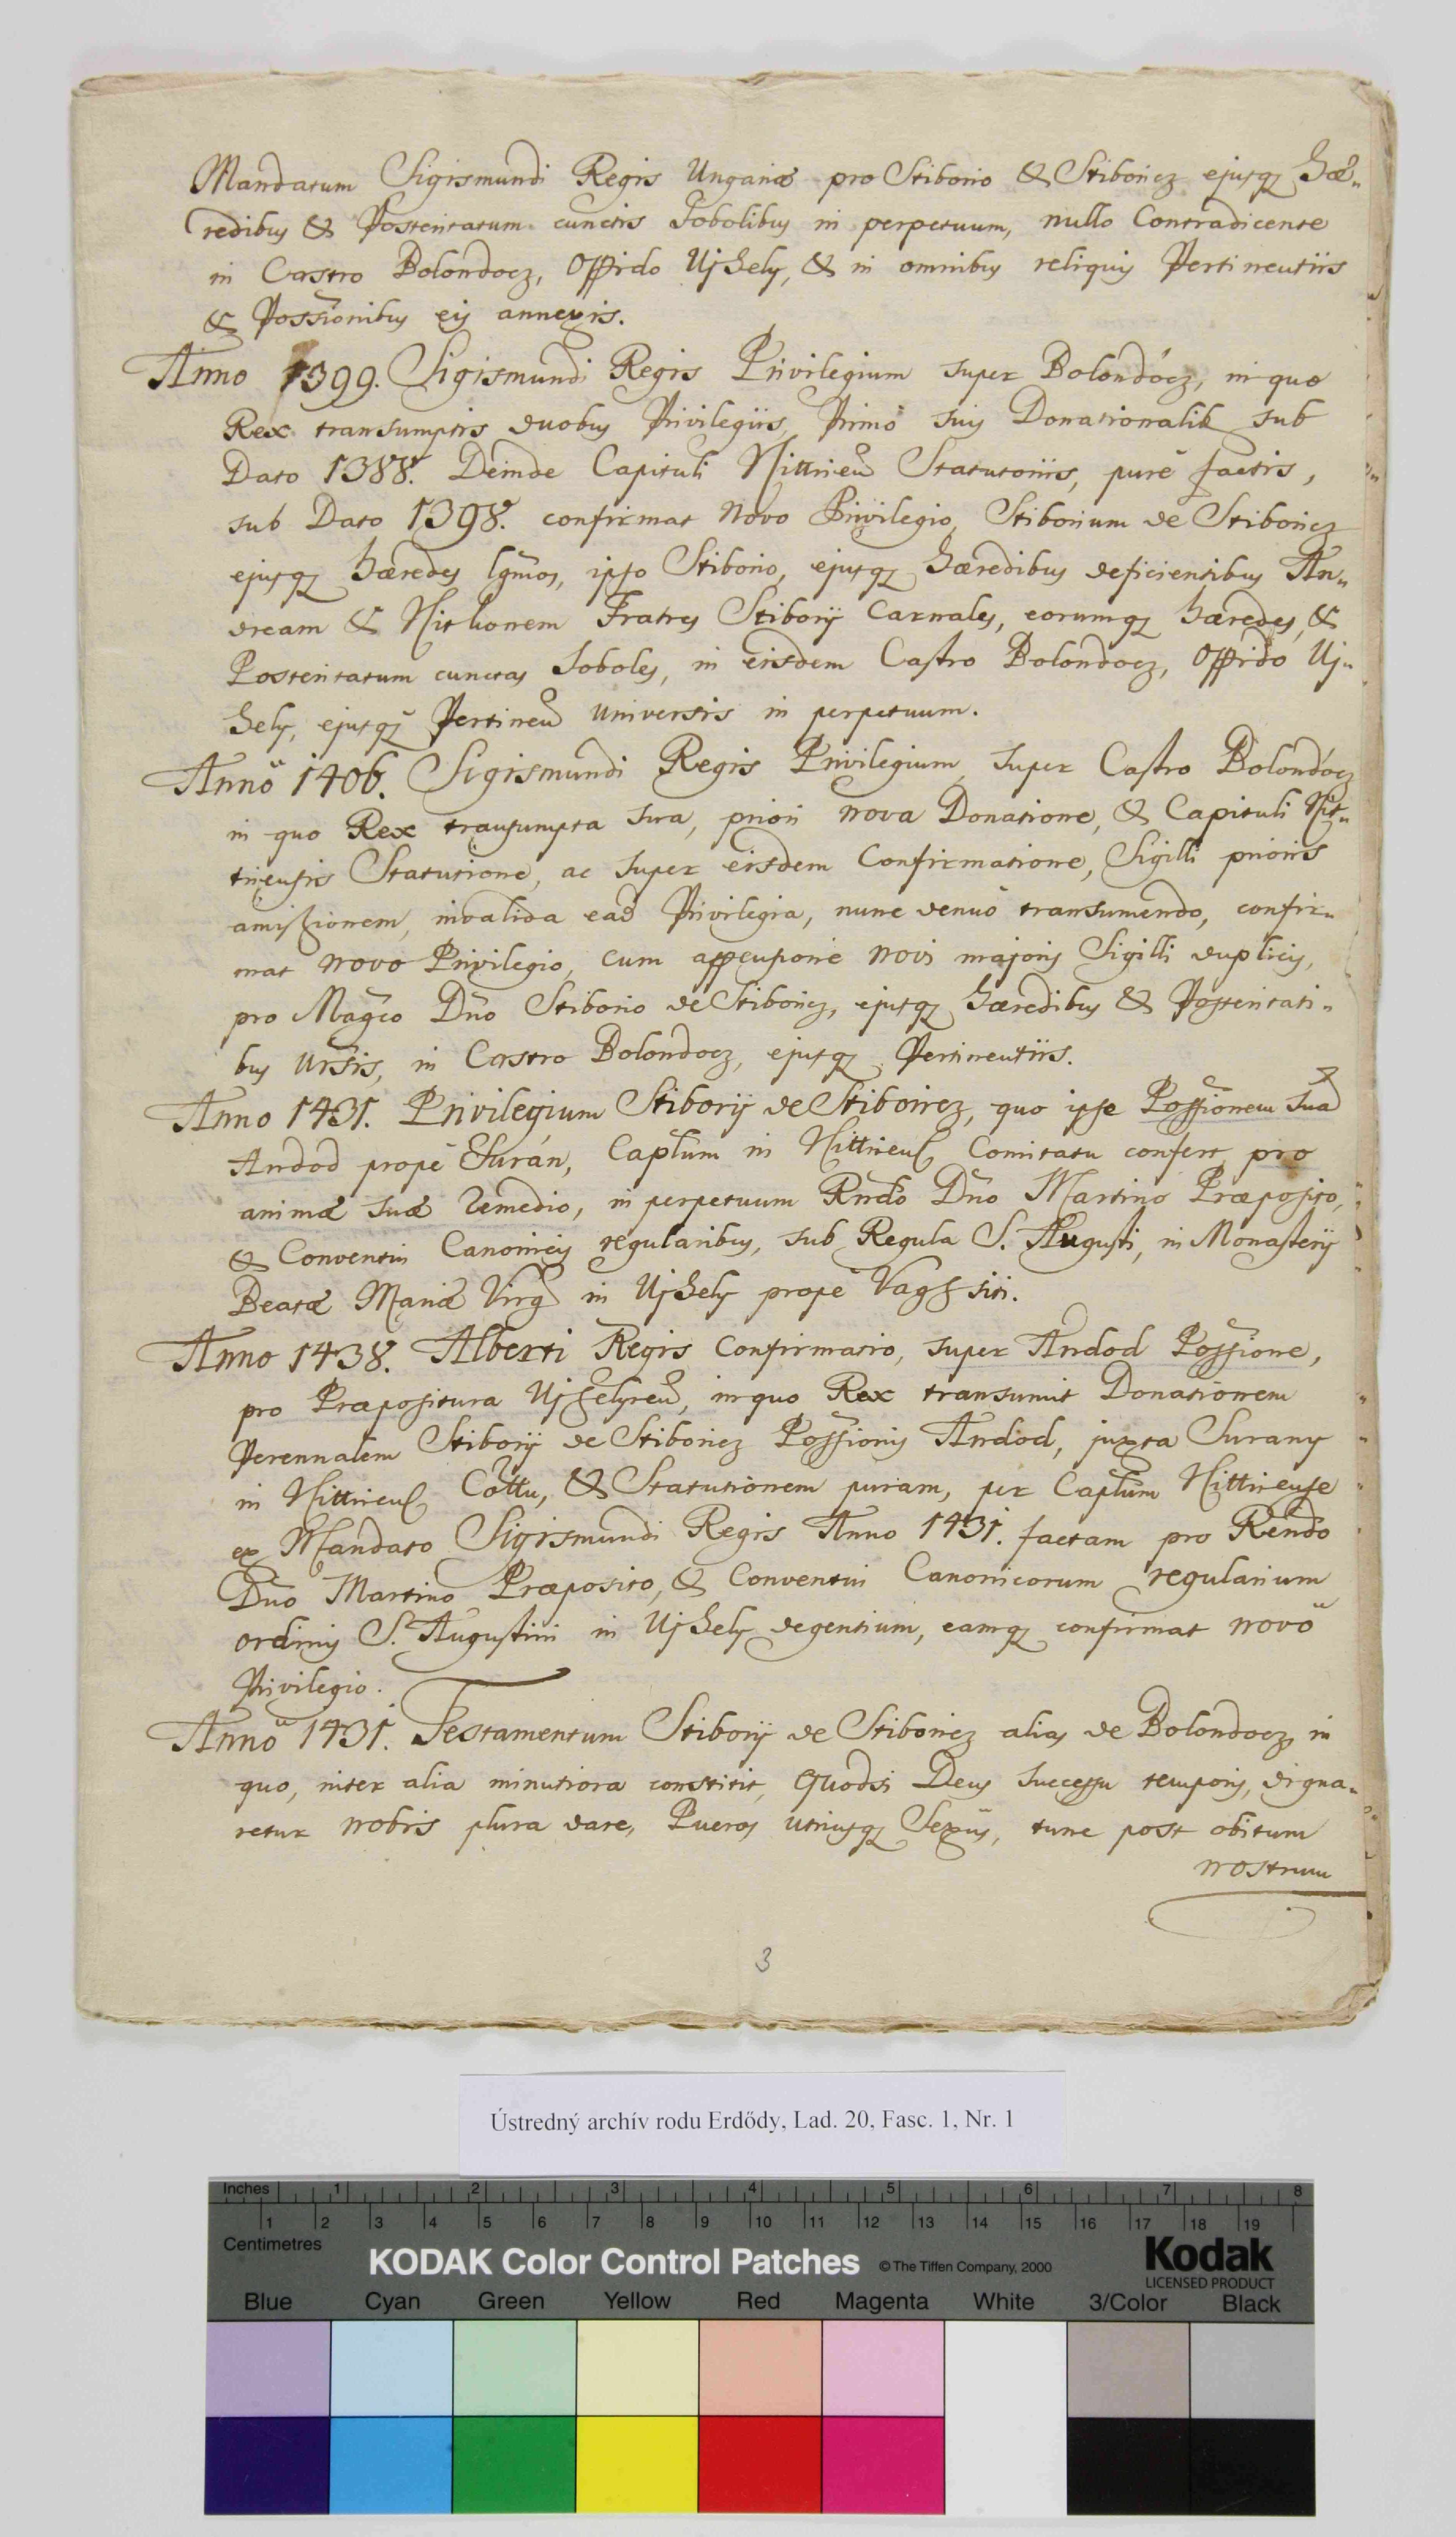 Mandatum Sigismundi Regis Ungariæ pro Stiborio & Stiboricz ejusq; Hæ-
redibus & Posteritatum cunctis Sobolibus in perpetuum, nullo Contradicente
in Castro Bolondocz, Oppido Ujhely, & in omnibus reliquis Pertinentiis
& Possionibus eis annexis.
Anno 1399. Sigismundi Regis Privilegium super Bolondócz, in quo
Rex transumptis duobus Privilegiis, Primo suis Donationalib sub
Dato 1388. Deinde Capituli Nittrien Statutoriis, purè factis,
sub Dato 1398. confirmat Novo Privilegio, Stiborium de Stiboricz
ejusq; Hæredes lgmos, ipso Stiborio, ejusq; Hæredibus deficientibus An-
dream & Nithonem Fratres Stiborij Carnales, eorumq; Hæredes, &
Posteritatum cunctas Soboles, in eisdem Castro Bolondocz, Oppido Uj-
hely, ejusq; Pertinen universis in perpetuum.
Annŏ 1406. Sigismundi Regis Privilegium, super Castro Bolondócz
in quo Rex transumpta sua, priori nova Donatione, & Capituli Nit-
triensis Statutione, ac super eisdem Confirmatione, Sigilli prioris
amissionem, invalida ead Privilegia, nunc denuò transumendo, confir-
mat novo Privilegio, cum appensione novi majoris Sigilli duplicis,
pro Magco Dno Stiborio de Stiboricz, ejusq; Hæredibus & Posteritati-
bus Ursis, in Castro Bolondocz, ejusq; Pertinentiis.
Anno 1431. Privilegium Stiborij de Stiboricz, quo ipse Possionem suã
Andod propè Surán, Captum in Nittriens Comitatu confert pro
animæ suæ remedio, in perpetuum Rndo Dno Martino Præposito,
& Conventui Canonicis regularibus, sub Regula S. Augusti, in Monasterij
Beatæ Mariæ Virg in Ujhely propè Vagh siti.
Anno 1438. Alberti Regis Confirmatio, super Andod Possione,
pro Præpositura Ujhelyien, in quo Rex transumit Donationem
Perennalem Stiborij de Stiboricz Possionis Andod, juxta Surany
in Nittriens Cottu, & Statutionem puram, per Caplum Nittriense
ex Mandato Sigismundi Regis Anno 1431. factam pro Rendo
Dno Martino Præposito, & Conventui Canonicorum regularium
ordinis S. Augustini in Ujhely degentium, eamq; confirmat novŏ
Privilegio.
Annŏ 1431. Testamentum Stiborij de Stiboricz alias de Bolondocz, in
quo, inter alia minutiora constitit, Quodsi Deus successu temporis, digna-
retur nobis plura dare, Pueros utriusq; Sexûs, tunc post obitum
nostrum
3
Ústredný archív rodu Erdődy, Lad. 20, Fasc. 1, Nr. 1
Inches 1 2 3 4 5 6 7 8
1 2 3 4 5 6 7 8 9 10 11 12 13 14 15 16 17 18 19
Centimetres
KODAK Color Control Patches © The Tiffen Company, 2000 Kodak
LICENSED PRODUCT
Blue Cyan Green Yellow Red Magenta White 3/Color Black